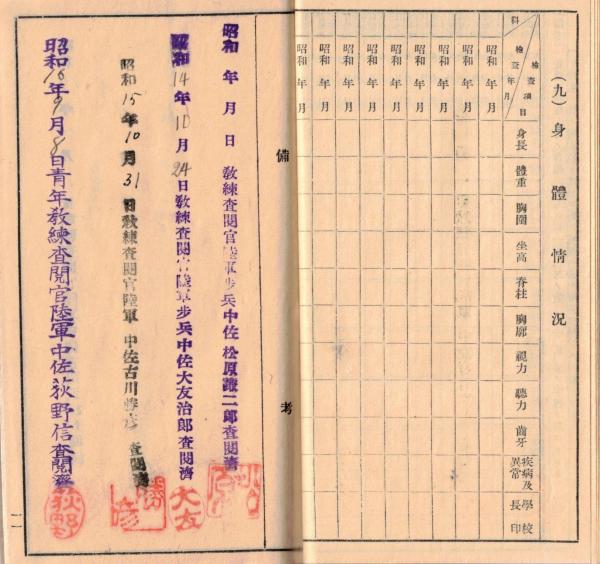 (九)身體情況
科
檢査年月
檢査項目
身長
體重
胸圍
坐高
脊柱
胸廓
視力
聽力
齒牙
疾病及異常
學校長印
昭和 年 月
昭和 年 月
昭和 年 月
昭和 年 月
昭和 年 月
昭和 年 月
昭和 年 月
昭和 年 月
備考
昭和 年 月 日 敎練査閲官陸軍步兵中佐 松原 二郎査閲濟
昭和14年10月24日敎練査閲官陸軍步兵中佐大友治郎査閲濟
大友
昭和15年10月31日敎練査閲官陸軍 中佐古川 査閲濟
昭和16年9月8日靑年敎練査閲官陸軍中佐荻野信査閲濟
荻野
一一